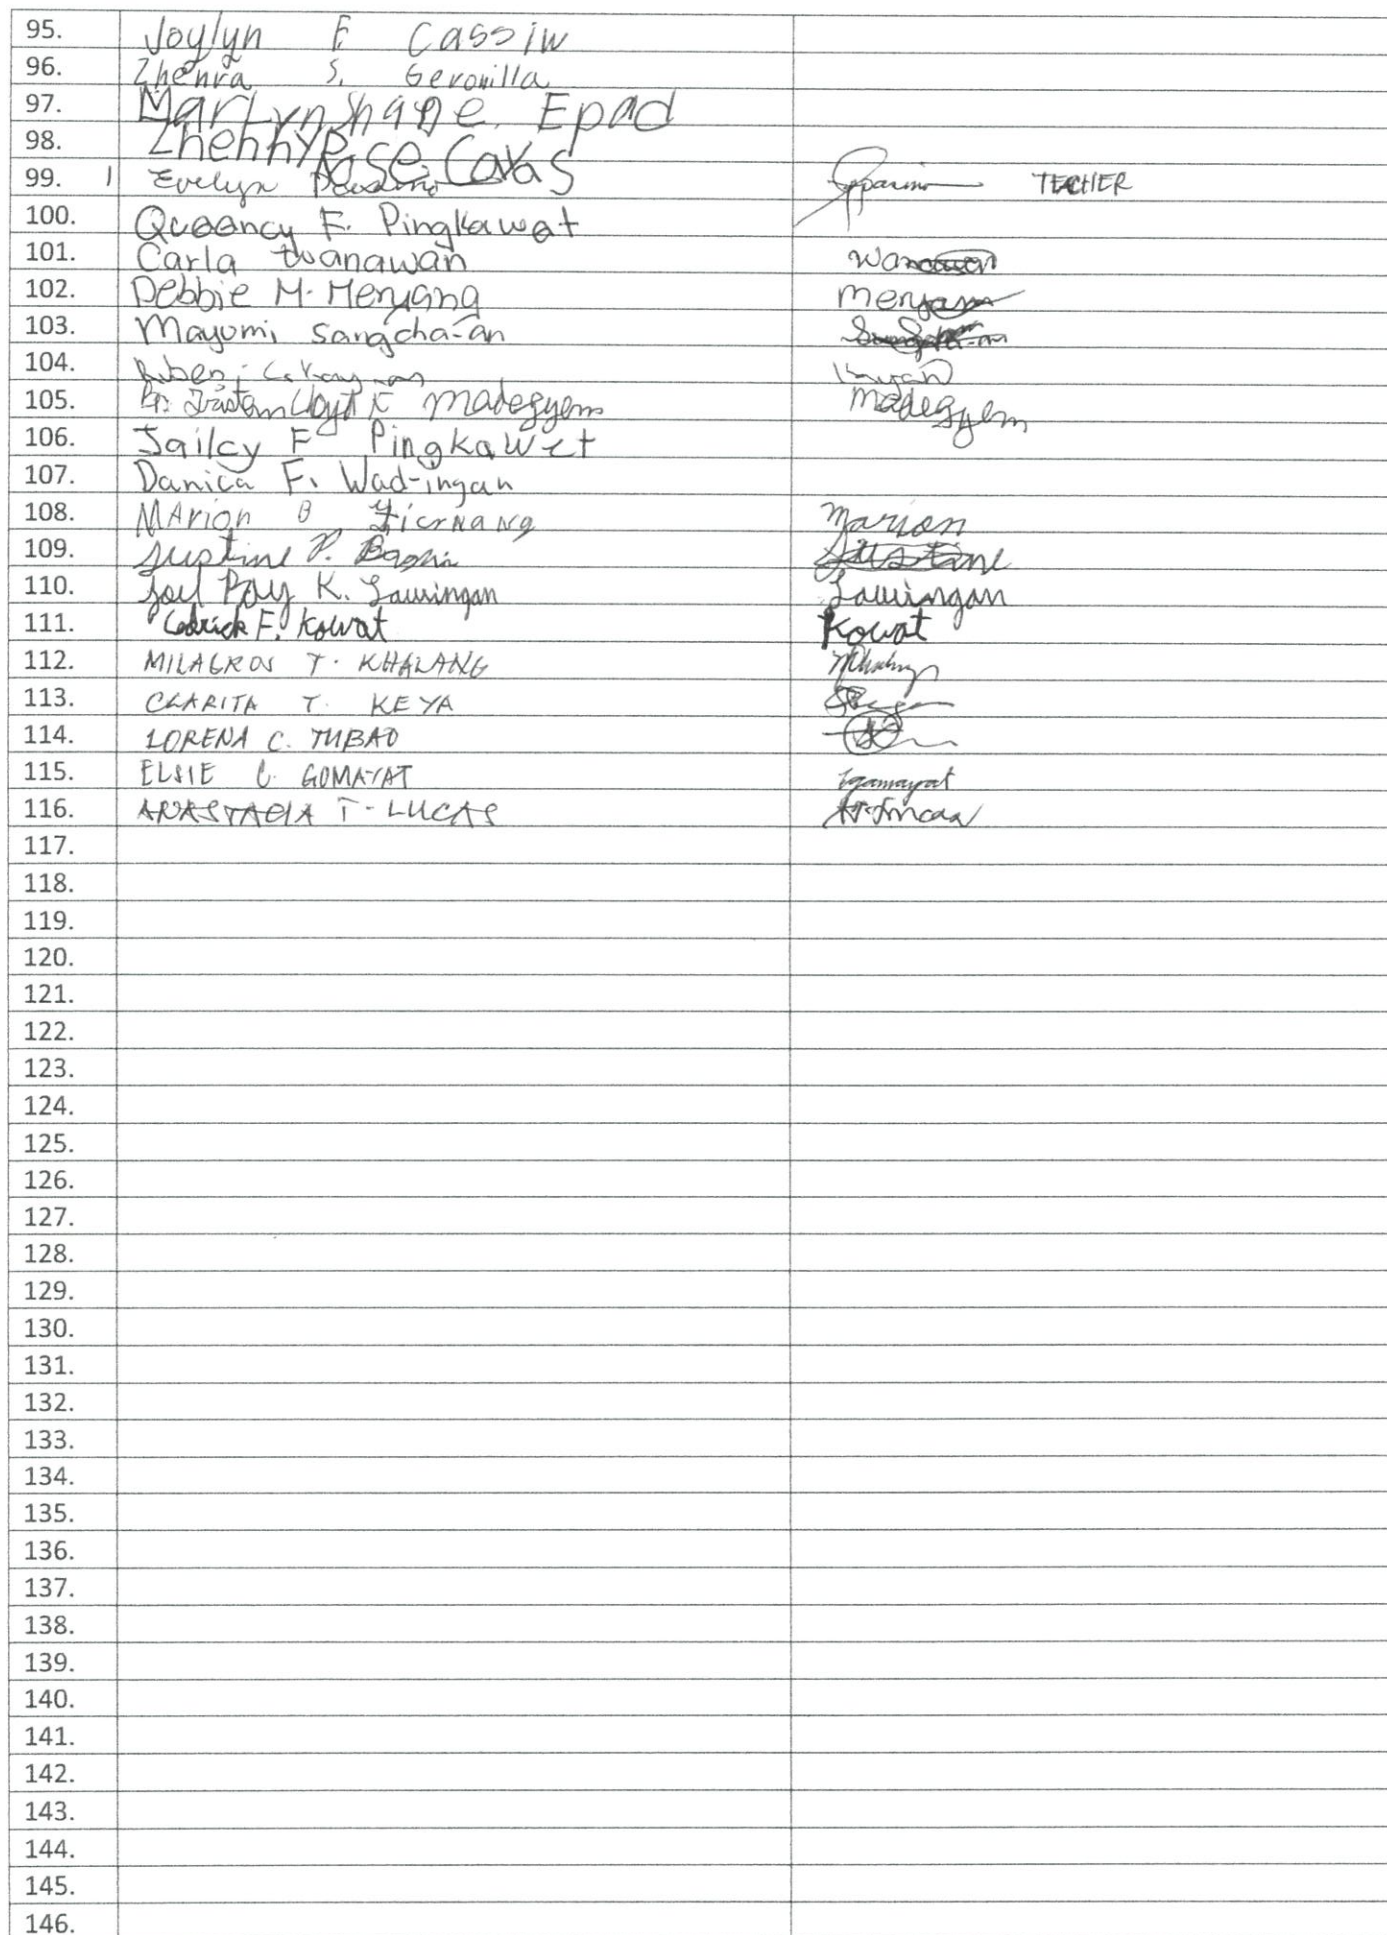 95. Joylyn F. Cassiw
96. Zhenra S. Geronilla
97. Marlynshane Epad
98. Zhenhyrose Cayas
99. 1 Evelyn TEACHER
100. Queency F. Pingkawat
101. Carla Wanawan
102. Debbie M. Menyang menyang
103. Mayumi Sangcha-an
104. Ruben
105. Lloyd F madegyem madegyem
106. Jailcy F Pingkawet
107. Danica F. Wad-ingan
108. MArion B marion
109. Justine P. Justine
110. Joel Ray K. Lawingan Lawingan
111. Cedrick F. Kowat Kowat
112. MILAGROS T. KHALANG
113. CLARITA T. KEYA
114. LORENA C. TUBAO
115. ELSIE C. GOMAYAT Egamayat
116. ANASTACIA T. LUCAS
117.
118.
119.
120.
121.
122.
123.
124.
125.
126.
127.
128.
129.
130.
131.
132.
133.
134.
135.
136.
137.
138.
139.
140.
141.
142.
143.
144.
145.
146.